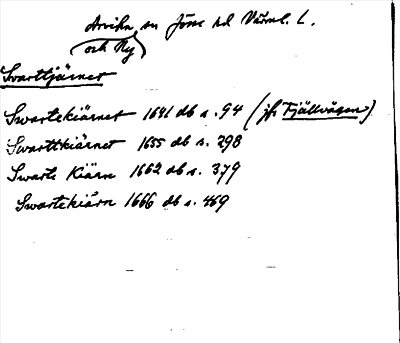 Arvika sn Jösse hd Värml. L.
och Ny
Svarttjärnet
Swartekiärnet 1641 db s. 94 (jfr Fjällvägen)
Swarttkiärnet 1655 db s. 298
Swarte Kiärn 1662 db s. 379
Swartekiärn 1666 db s. 469